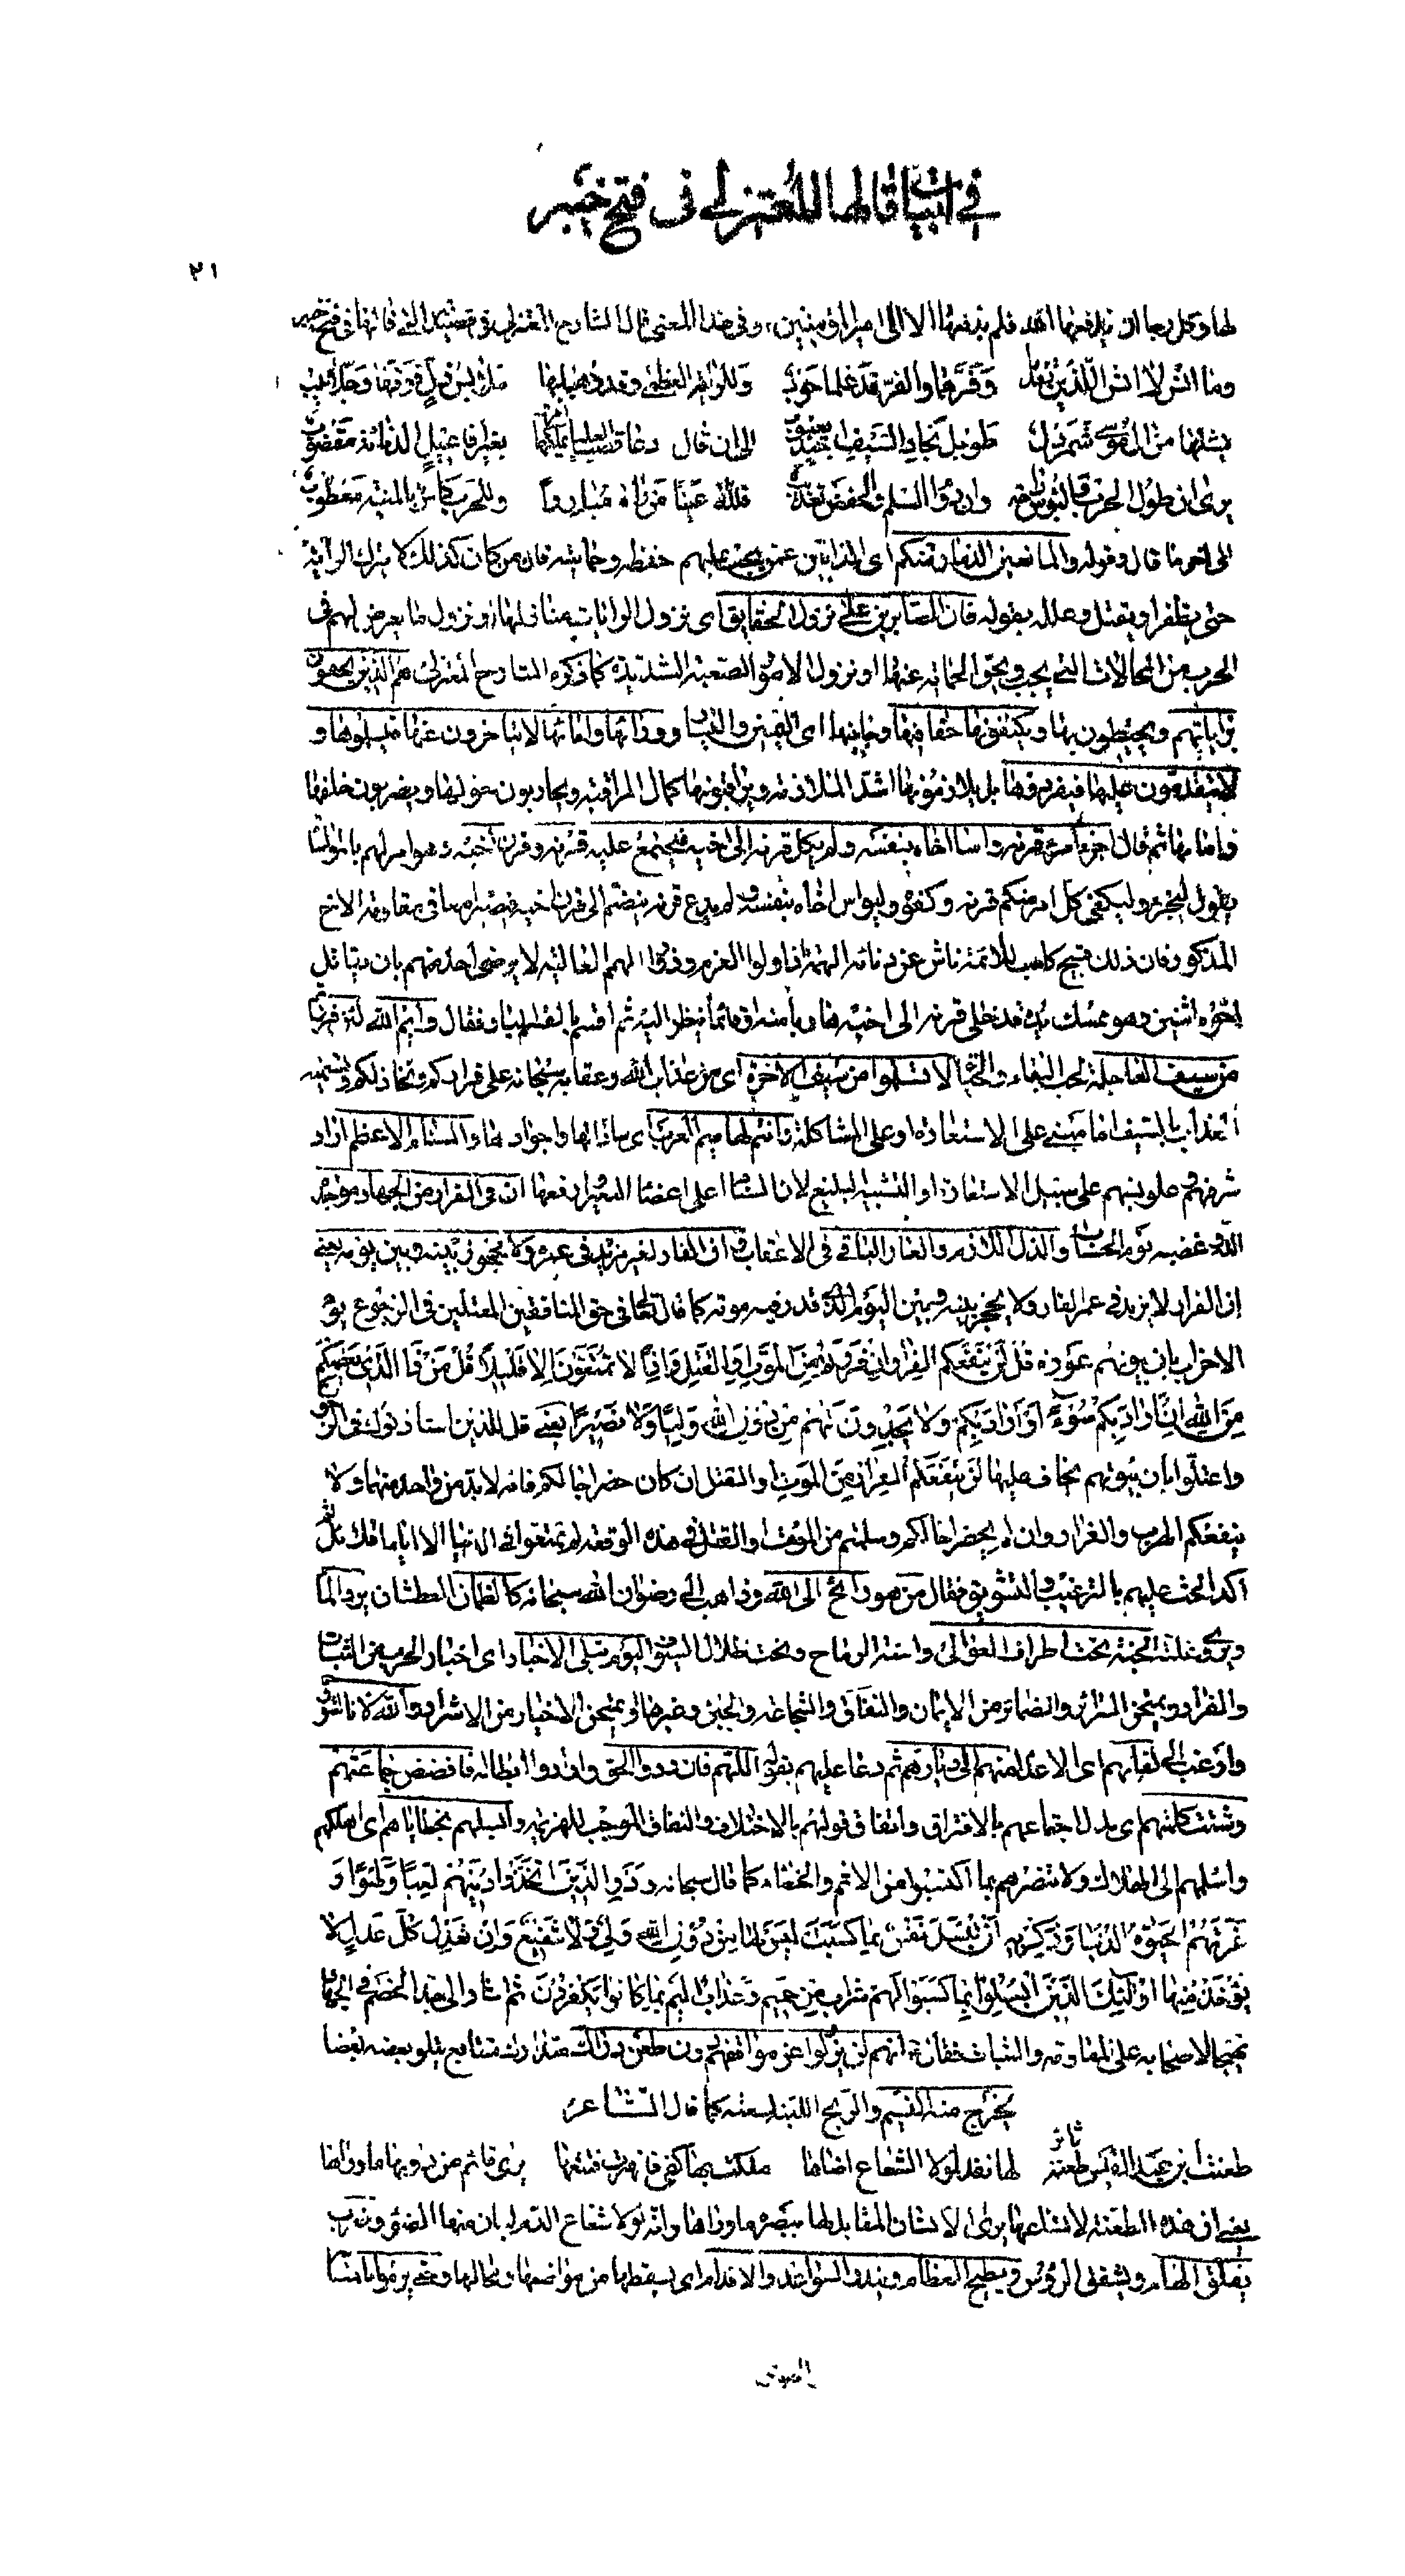 في ابيات قالها المعتزلي في فتح خيبر
٢١
لها وكل رجا ان يدفعها اليه فلم يدفعها الا الى امير المؤمنين، وفي هذا المعنى قال الشارح المعتزلي في قصيدته التي قالها في فتح خيبر
وما انس لا انس اللذين تقدما وفرهما والفر قد علما حوب وللراية العظمى وقد ذهبا بها ملابس ذل فوقها وجلابيب
يشلهما من آل موسى شمردل طويل نجاد السيف اجيد يعبوب الى ان قال دعا قصب العليا يملكها امرؤ بغير افاعيل الدناءة مقضوب
يرى ان طول الحرب والبؤس راحة وان دوام السلم والخفض تعذيب فلله عينا من رآه مبارزا وللحرب كأس بالمنية مقطوب
الى آخر ما قال وقوله والمانعين الذمار منكم اي الذابين عمن يجب عليهم حفظه وحمايته فان من كان كذلك لا يترك الراية
حتى يظفر او يقتل وعلله بقوله فان الصابرين على نزول الحقايق اي نزول الرايات منازلها او نزول ما يعرض لهم في
الحرب من الحالات التي يجب ويحق الحماية عنها او نزول الامور الصعبة الشديدة كما ذكره الشارح المعتزلي هم الذين يحفون
براياتهم ويحيطون بها ويكتنفونها حفافيها وجانبيها اي اليمين واليسار ووراءها وامامها لا يتاخرون عنها فيسلموها و
لا يتقدمون عليها فيفردوها بل يلازمونها اشد الملازمة ويراقبونها كمال المراقبة ويحاربون حوليها ويضربون خلفها
وامامها ثم قال اجزء امرء قرنه واسا اخاه بنفسه ولم يكل قرنه الى اخيه فيجتمع عليه قرنه وقرن اخيه وهو امر لهم بالمواساة
يقول ليجزء وليكفي كل امرء منكم قرنه وكفؤه وليواس اخاه بنفسه ولم يدع قرنه ينضم الى قرن اخيه فيصيرا معا في مقاومة الاخ
المذكور فان ذلك قبيح ناش عن دنائة الهمة اذ اولوا العزم وذوي الهمم العالية لا يرضى احد منهم بان يقاتل
اخوه اثنين وهو ممسك يده قد خلى قرنه الى اخيه هاربا منه او قائما ينظر اليه ثم اقسم بالقسم البار فقال وايم الله لئن فررتم
من سيف العاجلة لحب البقاء والحياة لا تسلموا من سيف الآخرة اي من عذاب الله وعقابه سبحانه على فراركم وتخاذلكم وتسميته
العذاب بالسيف اما مبني على الاستعارة او على المشاكلة وانتم لهاميم العرب اي ساداتها واجوادها والسنام الاعظم اراد
شرفهم وعلو نسبهم على سبيل الاستعارة او التشبيه البليغ لان السنام اعلى اعضاء البعير ارفعها ان في الفرار من الجهاد موجدة
الله وغضبه يوم الحساب والذل اللازم والعار الباقي في الاعقاب وان الفار لغير مزيد في عمره ولا محجوز بينه وبين يومه يعني
ان الفرار لا يزيد في عمر الفار ولا يحجز بينه وبين اليوم الذي قدر فيه موته كما قال تعالى في حق المنافقين المعتلين في الرجوع يوم
الاحزاب بان بيوتهم عورة قل لن ينفعكم الفرار ان فررتم من الموت او القتل واذا لا تمتعون الا قليلا قل من ذا الذي يعصمكم
من الله ان اراد بكم سوءا او اراد بكم رحمة ولا يجدون لهم من دون الله وليا ولا نصيرا يعني قل للذين استاذنوك في الرجوع
واعتلوا بان بيوتهم يخاف عليها لن ينفعكم الفرار من الموت او القتل ان كان حضر اجالكم فانه لا بد من واحد منهما ولا
ينفعكم الهرب والفرار وان لم يحضر اجالكم وسلمتم من الموت او القتل في هذه الوقعة لم تمتعوا في الدنيا الا اياما قلائل ثم
اكد الحث عليهم بالترغيب والتشويق فقال من هو رائح الى الله وذاهب الى رضوان الله سبحانه كالظمان العطشان يرد الماء
ويروي غلته الجنة تحت اطراف العوالي واسنة الرماح وتحت ظلال السيوف اليوم تبلى الاخبار اي اخبار الحرب من الثبات
والفرار ويمتحن السرائر والضمائر من الايمان والنفاق والشجاعة والجبن وغيرها او يمتحن الاخيار من الاشرار والله لانا اشوق
وارغب الى لقائهم اي الاعداء منهم الى ديارهم ثم دعا عليهم بقوله اللهم فان ردوا الحق وارادوا ابطاله فافضض جماعتهم
وشتت كلمتهم اي بدل اجتماعهم بالافتراق واتفاق قولهم بالاختلاف والنفاق الموجب للهزيمة وابسلهم بخطاياهم اي اهلكهم
واسلمهم الى الهلاك ولا تنصرهم بما اكتسبوا من الاثم والخطاء كما قال سبحانه وذر الذين اتخذوا دينهم لعبا ولهوا و
غرتهم الحيوة الدنيا وذكر به ان تبسل نفس بما كسبت ليس لها من دون الله ولي ولا شفيع وان تعدل كل عدل لا
يؤخذ منها اولئك الذين ابسلوا بما كسبوا لهم شراب من حميم وعذاب اليم بما كانوا يكفرون ثم اشار الى الخصم في الجهاد
تهييجا لاصحابه على المقاومة والثبات فقال انهم لن يزولوا عن مواقفهم دون طعن دراك متدارك متتابع يتلو بعضه بعضا
يخرج منه النسيم والريح اللينة لسعته كما قال الشاعر
طعنت ابن عبد القيس طعنة ثائر لها نفذ لولا الشعاع اضاءها ملكت بها كفي فانهرت فتقها يرى قائم من دونها ما وراءها
يعني ان هذه الطعنة لاتساعها يرى الانسان المقابل لها ببصره ما وراءها وانه لولا شعاع الدم لبان منها الضوء وضرب
يفلق الهام ويشقق الرؤس ويطيح العظام ويندر السواعد والاقدام اي يسقطها من مواضعها ومحالها وحتى يرموا بالمناسر